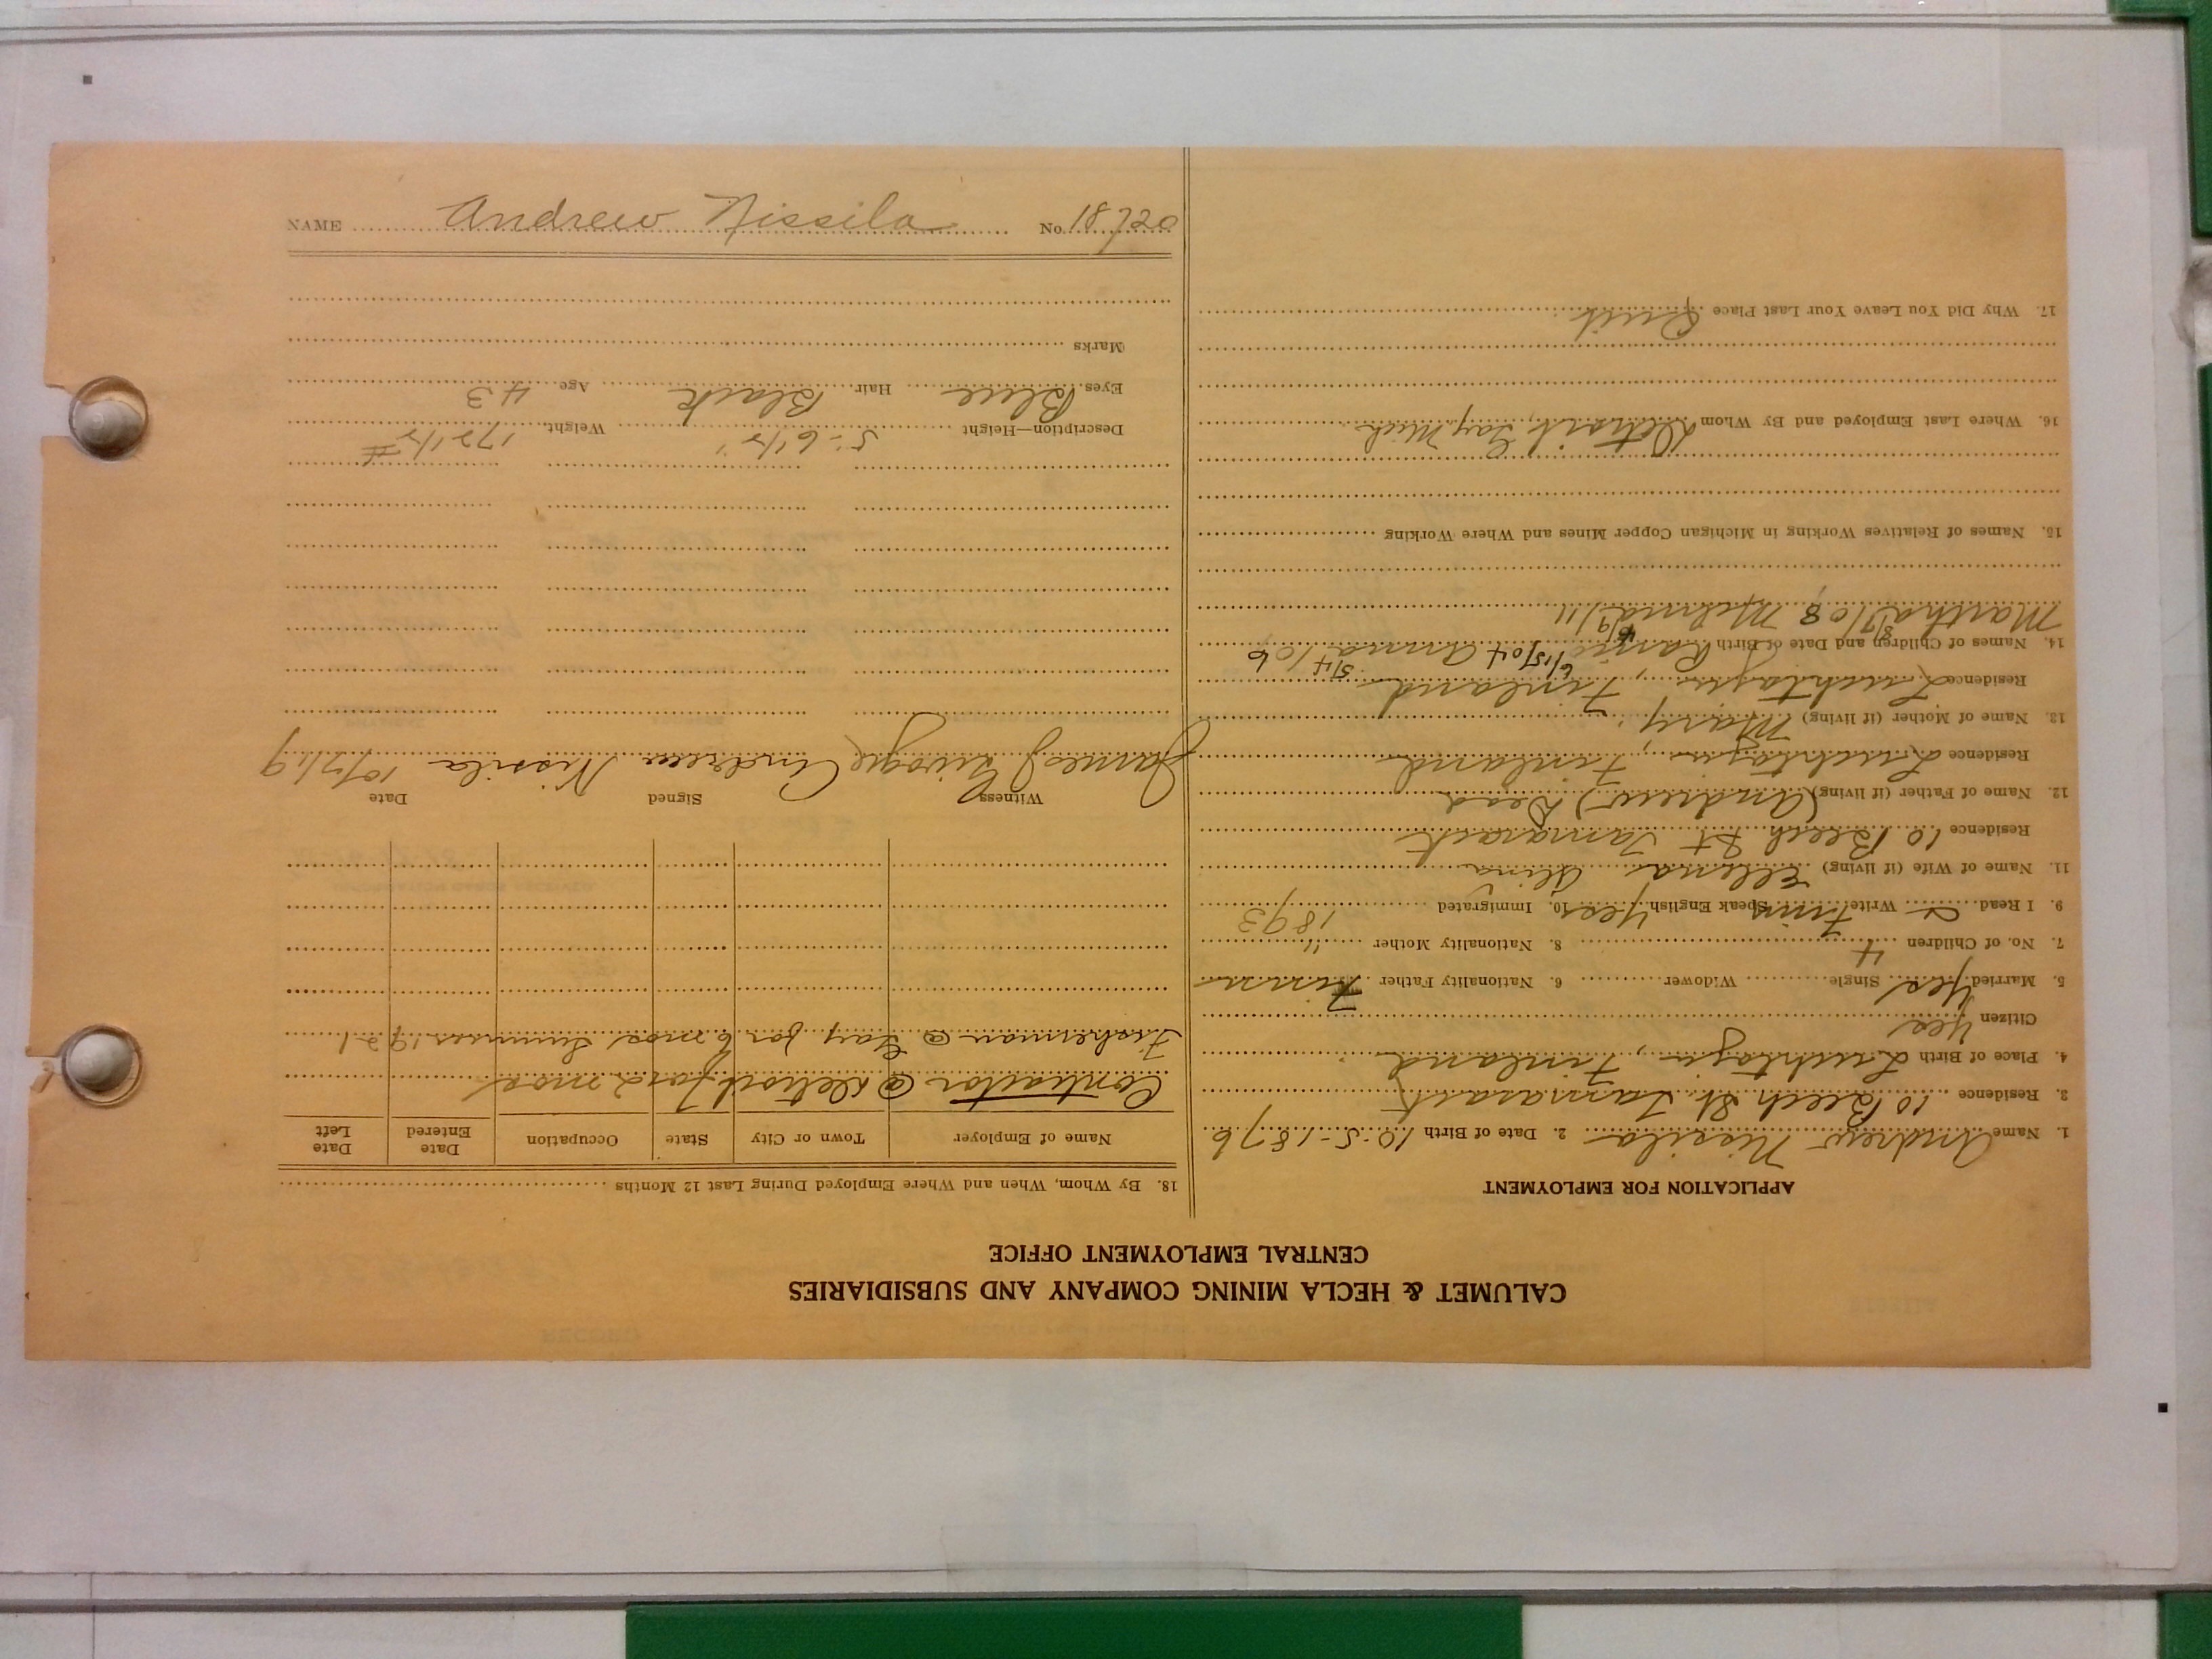 CALUMET & HECLA MINING COMPANY AND SUBSIDIARIES
CENTRAL EMPLOYMENT OFFICE
APPLICATION FOR EMPLOYMENT
1. Name Andrew Nissila 2. Date of Birth 10-5-1876
3. Residence 10 Beech St. Tamarack
4. Place of Birth Luohtaja, Finland
Citizen Yes
5. Married Yes Single Widower 6. Nationality Father Finn
7. No. of Children 4 8. Nationality Mother "
9. I Read & Write Finn Speak English Yes 10. Immigrated 1893
11. Name of Wife (if living) Ellena Alina
Residence 10 Beech St Tamarack
12. Name of Father (if living) (Andrew) Dead
Residence Luohtaja, Finland
13. Name of Mother (if living) Mary
Residence Luohtaja, Finland
14. Names of Children and Date of Birth 6/15/04 Anna 5/4/06
Martha 8/7/08 6/9/11
15. Names of Relatives Working in Michigan Copper Mines and Where Working
16. Where Last Employed and By Whom Detroit, Gay Mich
17. Why Did You Leave Your Last Place Quit
18. By Whom, When and Where Employed During Last 12 Months
Name of Employer Town or City State Occupation Date Entered Date Left
Contractor @ Detroit for 2 mos
Fisherman @ Gay for 6 mos Summer 1921
Witness Signed Date
James J Andrew Nissila 10/7/19
Description—Height 5-6 1/2" Weight 172 1/2 #
Eyes Blue Hair Black Age 43
Marks
NAME Andrew Nissila No. 18720